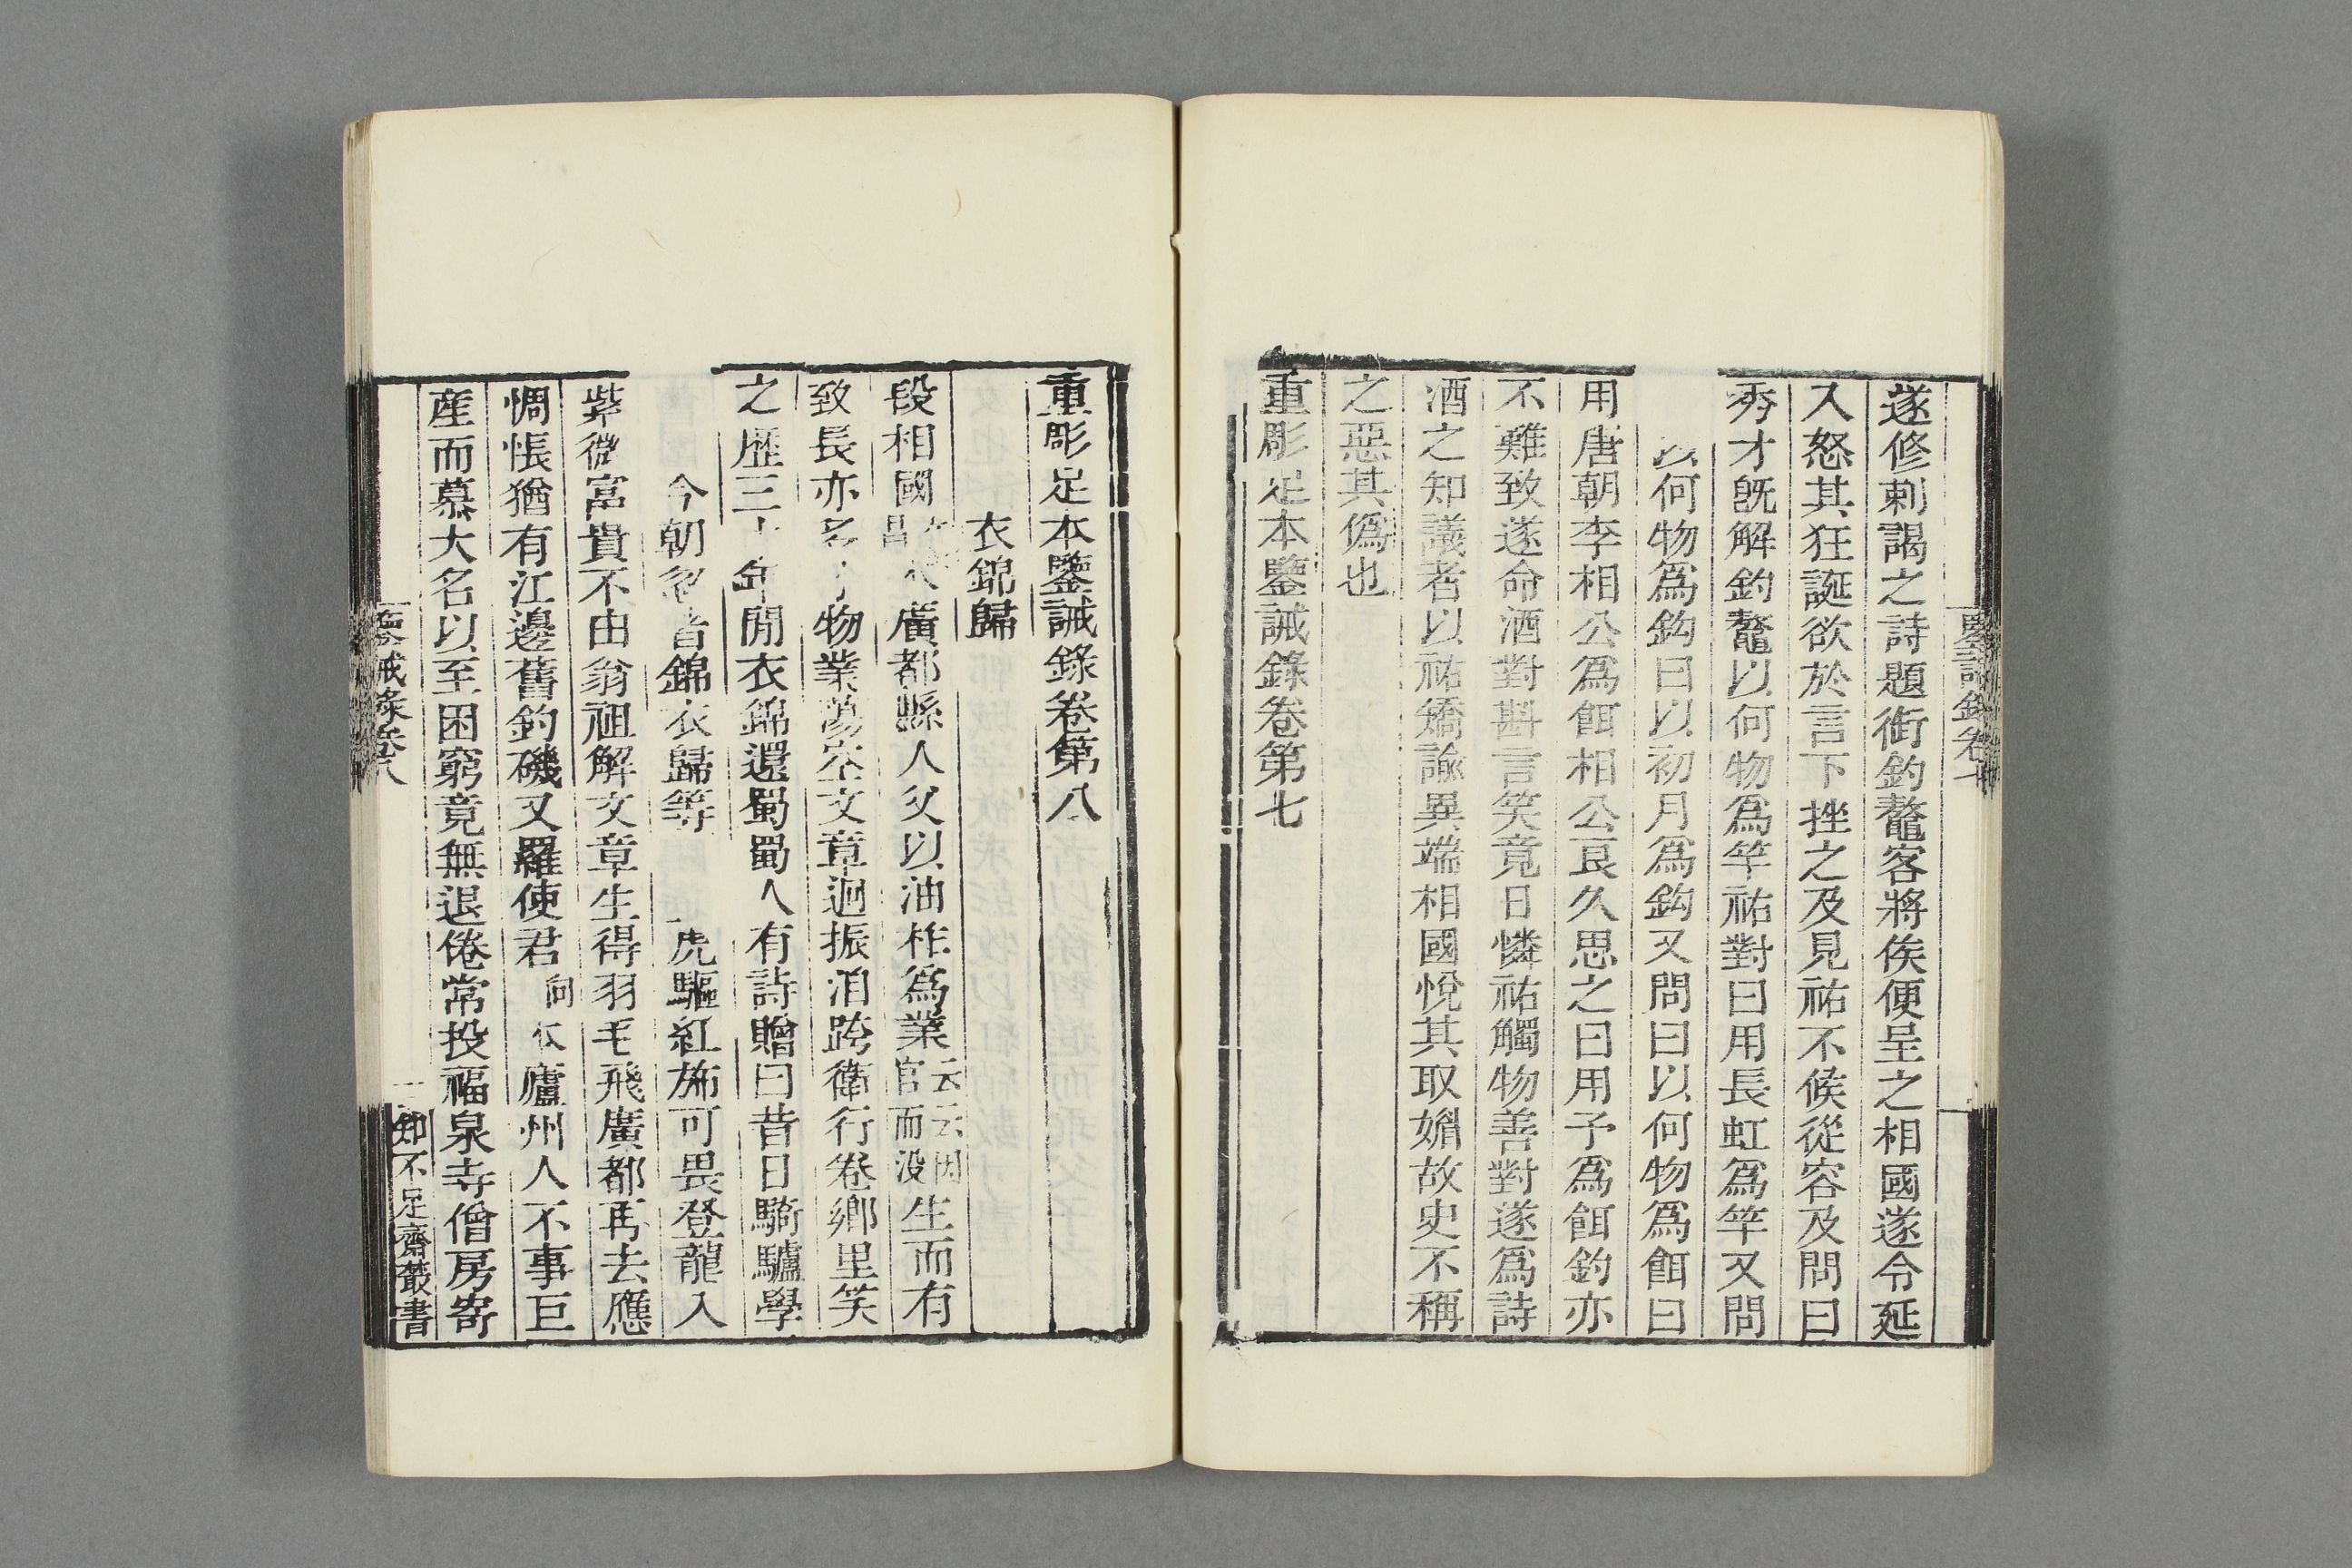 鑒誡錄卷
遂修剌謁之詩題銜釣鼇客將俟便呈之相國遂令延
入怒其狂誕欲於言下挫之及見祐不候從容及問曰
秀才旣解釣鼇以何物爲竿祐對曰用長虹爲竿又問
以何物爲鈎曰以初月爲鈎又問曰以何物爲餌曰
用唐朝李相公爲餌相公良久思之曰用予爲餌釣亦
不難致遂命酒對斟言笑竟日憐祐觸物善對遂爲詩
酒之知議者以祐矯譎異端相國悅其取媚故史不稱
之惡其僞也
重彫足本鑒誡錄卷第七
重彫足本鑒誡錄卷第八
衣錦歸
段相國文昌廣都縣人父以油柞爲業云云因官而没生而有
致長亦名物業蕩空文章迥振洎跨衛行卷鄉里笑
之歷三十年閒衣錦還蜀蜀人有詩贈曰昔日騎驢學
今朝者錦衣歸等虎驅紅斾可畏登龍入
紫微富貴不由翁祖解文章生得羽毛飛廣都再去應
惆悵猶有江邊舊釣磯又羅使君向廬州人不事巨
產而慕大名以至困窮竟無退倦常投福泉寺僧房寄
鑒誡錄卷八
知不足齋叢書